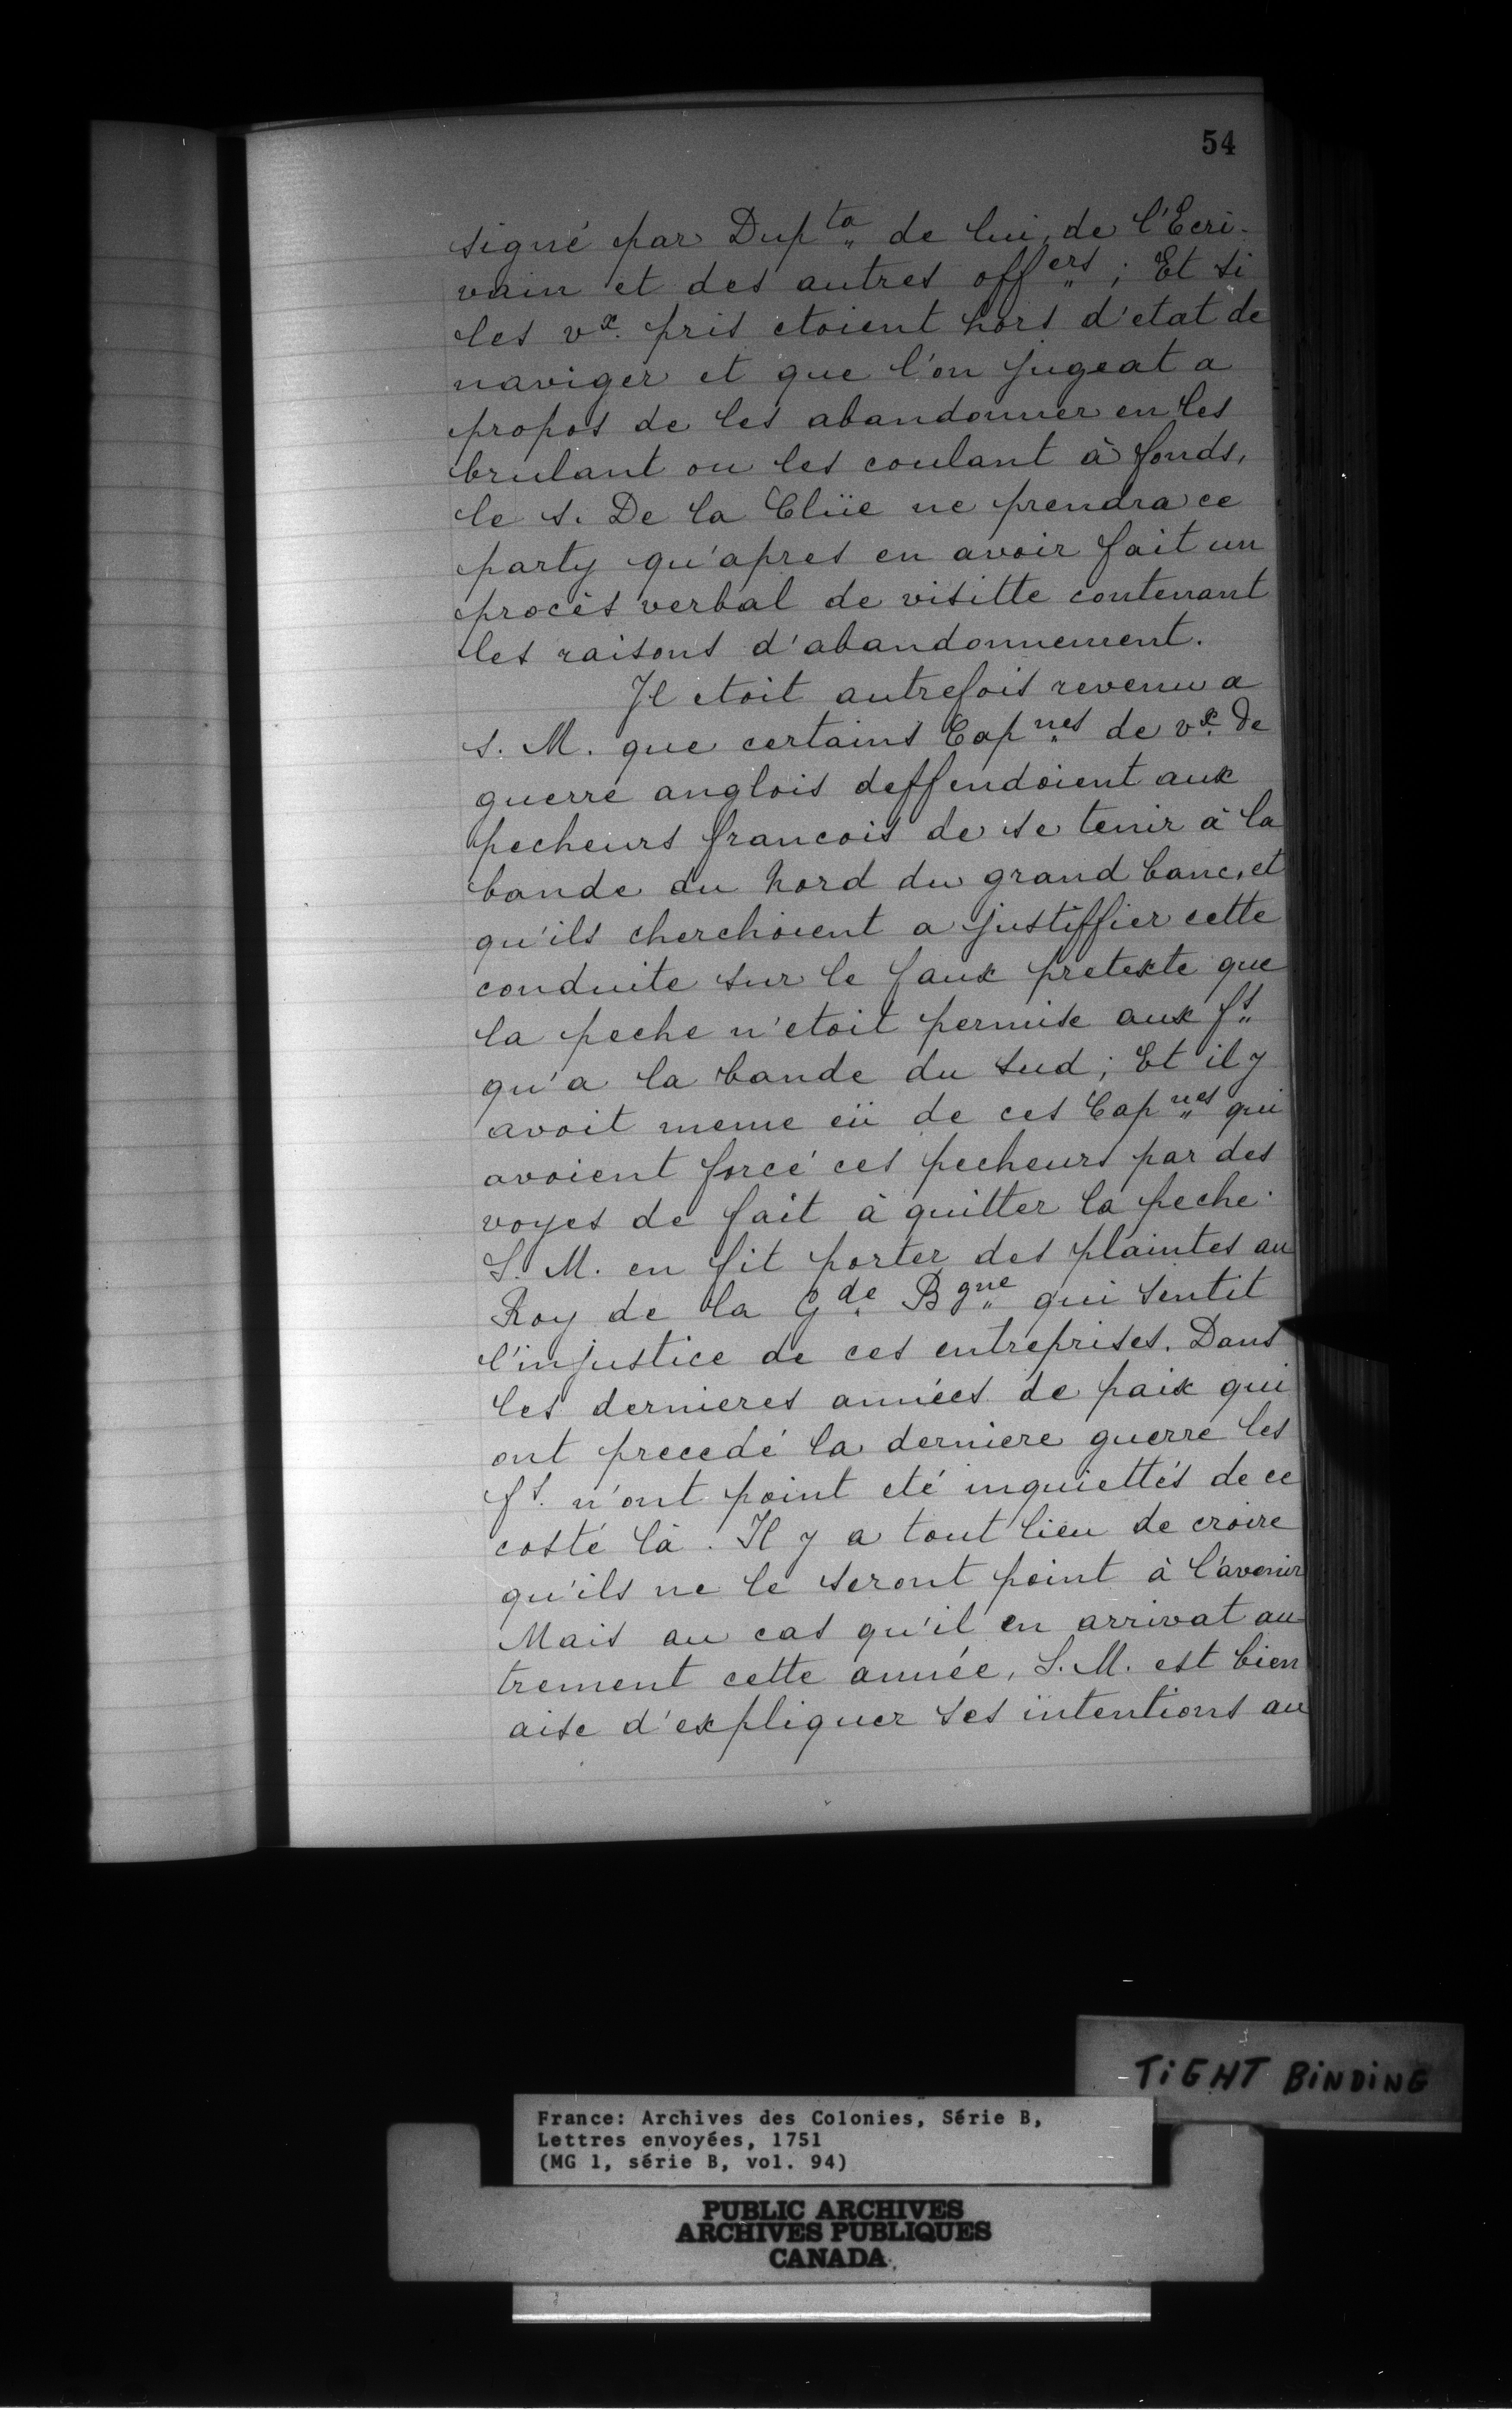 54
signé par Dup ta de lui, de l'Ecri-
vain et des autres off ers; Et si
les vx. pris etoient hors d'etat de
naviger et que l'on jugeat a
propos de les abandonner en les
brulant ou les coulant à fonds,
le s. De la Clüe ne prendra ce
party qu'apres en avoir fait un
procès verbal de visitte contenant
les raisons d'abandonnement.
Il etoit autrefois revenu a
S. M. que certains Cap nes de vx. de
guerre anglois deffendoient aux
pecheurs francois de se tenir à la
bande du nord du grand banc, et
qu'ils cherchoient a justiffier cette
conduite sur le faux pretexte que
la peche n'etoit permise aux fs.
qu'a la bande du sud; Et il y
avoit meme eü de ces Cap nes qui
avoient forcé ces pecheurs par des
voyes de fait à quitter la peche.
S. M. en fit porter des plaintes au
Roy de la G de B gne qui sentit
l'injustice de ces entreprises. Dans
les dernieres années de paix qui
ont precedé la derniere guerre les
fs. n'ont point eté inquiettés de ce
costé là. Il y a tout lieu de croire
qu'ils ne le seront point à l'avenir
Mais au cas qu'il en arrivat au
trement cette année, S. M. est bien
aise d'expliquer ses intentions au
TIGHT BINDING
France: Archives des Colonies, Série B,
Lettres envoyées, 1751
(MG 1, série B, vol. 94)
PUBLIC ARCHIVES
ARCHIVES PUBLIQUES
CANADA